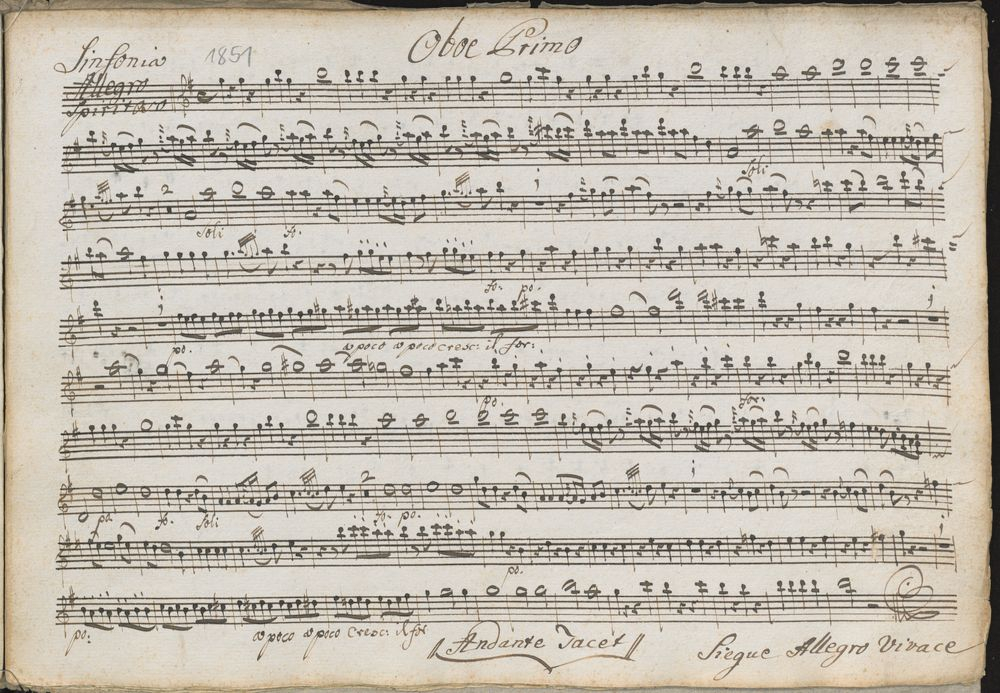 Oboe Primo
Sinfonia 1851
Allegro
Spiritoso
Soli
Soli fo.
fo. po.
po. a poco a poco cresc: il for:
po. for:
po. fo. Soli fo. po.
po.
po. a poco a poco Cresc: il for
Andante Tacet
Siegue Allegro Vivace